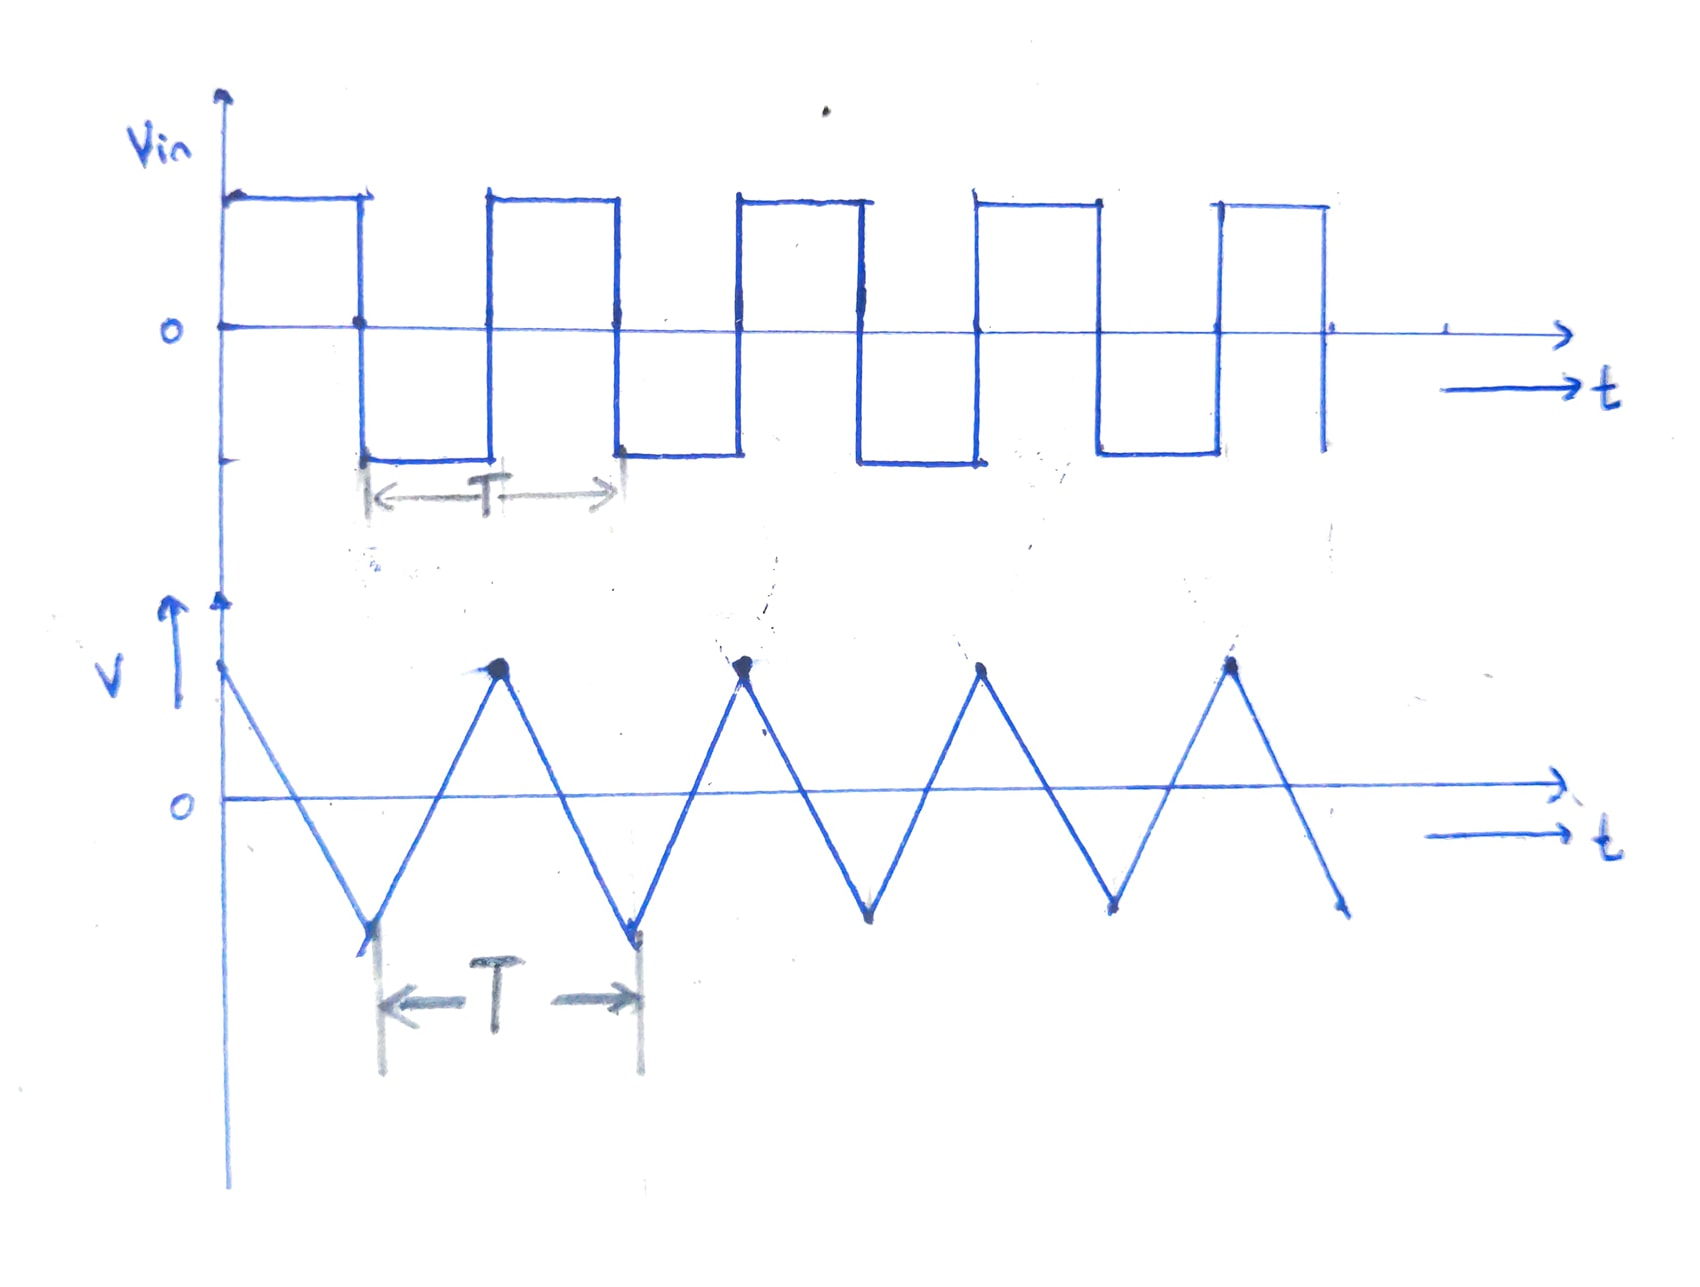 Vin
0
t
T
V
0
t
T